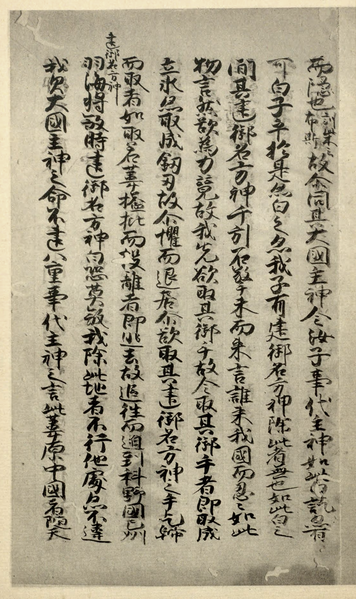 而隱也訓柴云布斯故尒問其大國主神今汝子事代主神如此白訖亦有
可白子乎於是亦白之亦我子有建御名方神除此者無也如此白之
間其建御名方神千引石擎手末而来言誰来我國而忍々如此
物言然欲為力競故我先欲取其御手故令取其御手者即取成
立氷亦取成釼刃故尒懼而退居尒欲取其建御名方神之手乞歸
而取者如取若葦搤批而投離者即逃去故追往而迫到科野國之州
建御名方神
羽海将殺時建御名方神白恐莫殺我除此地者不行他處亦不違
我父大國主神之命不違八重事代主神之言此葦原中國者随天